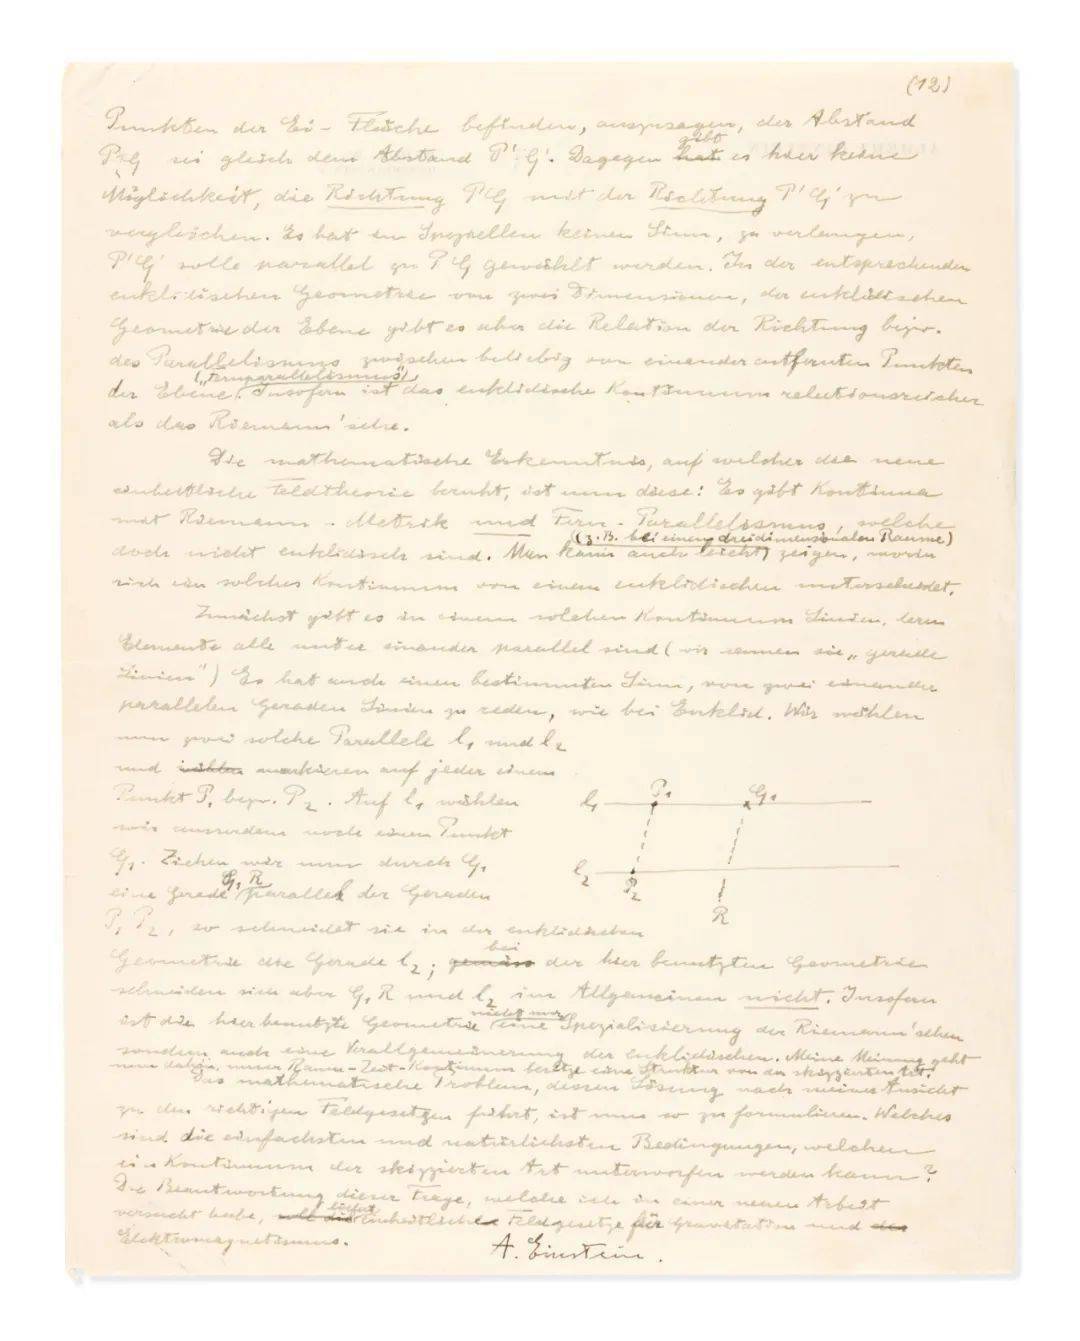 (12)
Punkten der Ei-Fläche befinden, auszusagen, der Abstand
PG sei gleich dem Abstand P'G'. Dagegen hat gibt es hier keine
Möglichkeit, die Richtung PG mit der Richtung P'G' zu
vergleichen. Es hat im Speziellen keinen Sinn, zu verlangen,
P'G' solle parallel zu PG gewählt werden. In der entsprechenden
euklidischen Geometrie von zwei Dimensionen, der euklidischen
Geometrie der Ebene gibt es aber die Relation der Richtung bezw.
des Parallelismus zwischen beliebig von einander entfernten Punkten
(„Fernparallelismus")
der Ebene. Insofern ist das euklidische Kontinuum relationsreicher
als das Riemann'sche.
Die mathematische Erkenntnis, auf welcher die neue
einheitliche Feldtheorie beruht, ist nun diese: Es gibt Kontinua
mit Riemann-Metrik und Fern-Parallelismus, welche
(z.B. bei einem dreidimensionalen Raume)
doch nicht euklidisch sind. Man kann auch leicht zeigen, worin
sich ein solches Kontinuum von einem euklidischen unterscheidet.
Zunächst gibt es in einem solchen Kontinuum Linien, deren
Elemente alle unter einander parallel sind (wir nennen sie „gerade
Linien") Es hat auch einen bestimmten Sinn, von zwei einander
parallelen Geraden Linien zu reden, wie bei Euklid. Wir wählen
nun zwei solche Parallele l₁ und l₂
und wählen markieren auf jeder einen
Punkt P₁ bezw. P₂. Auf l₁ wählen
wir ausserdem noch einen Punkt
G₁. Ziehen wir nun durch G₁
eine Gerade G₁R parallel der Geraden
P₁P₂, so schneidet sie in der euklidischen
l₁ P₁ G₁
l₂ P₂ R
Geometrie die Gerade l₂; gemäss bei der hier benutzten Geometrie
schneiden sich aber G₁R und l₂ im Allgemeinen nicht. Insofern
ist die hier benutzte Geometrie nicht nur eine Spezialisierung der Riemann'schen
sondern auch eine Verallgemeinerung der euklidischen. Meine Meinung geht
nun dahin, unser Raum-Zeit-Kontinuum besitze eine Struktur von der skizzierten Art.
Das mathematische Problem, dessen Lösung nach meiner Ansicht
zu den richtigen Feldgesetzen führt, ist nun so zu formulieren. Welches
sind die einfachsten und natürlichsten Bedingungen, welchen
ein Kontinuum der skizzierten Art unterworfen werden kann?
Die Beantwortung dieser Frage, welche ich in einer neuen Arbeit
versucht habe, soll die liefert einheitliche Feldgesetze für Gravitation und der
Elektromagnetismus.
A. Einstein.